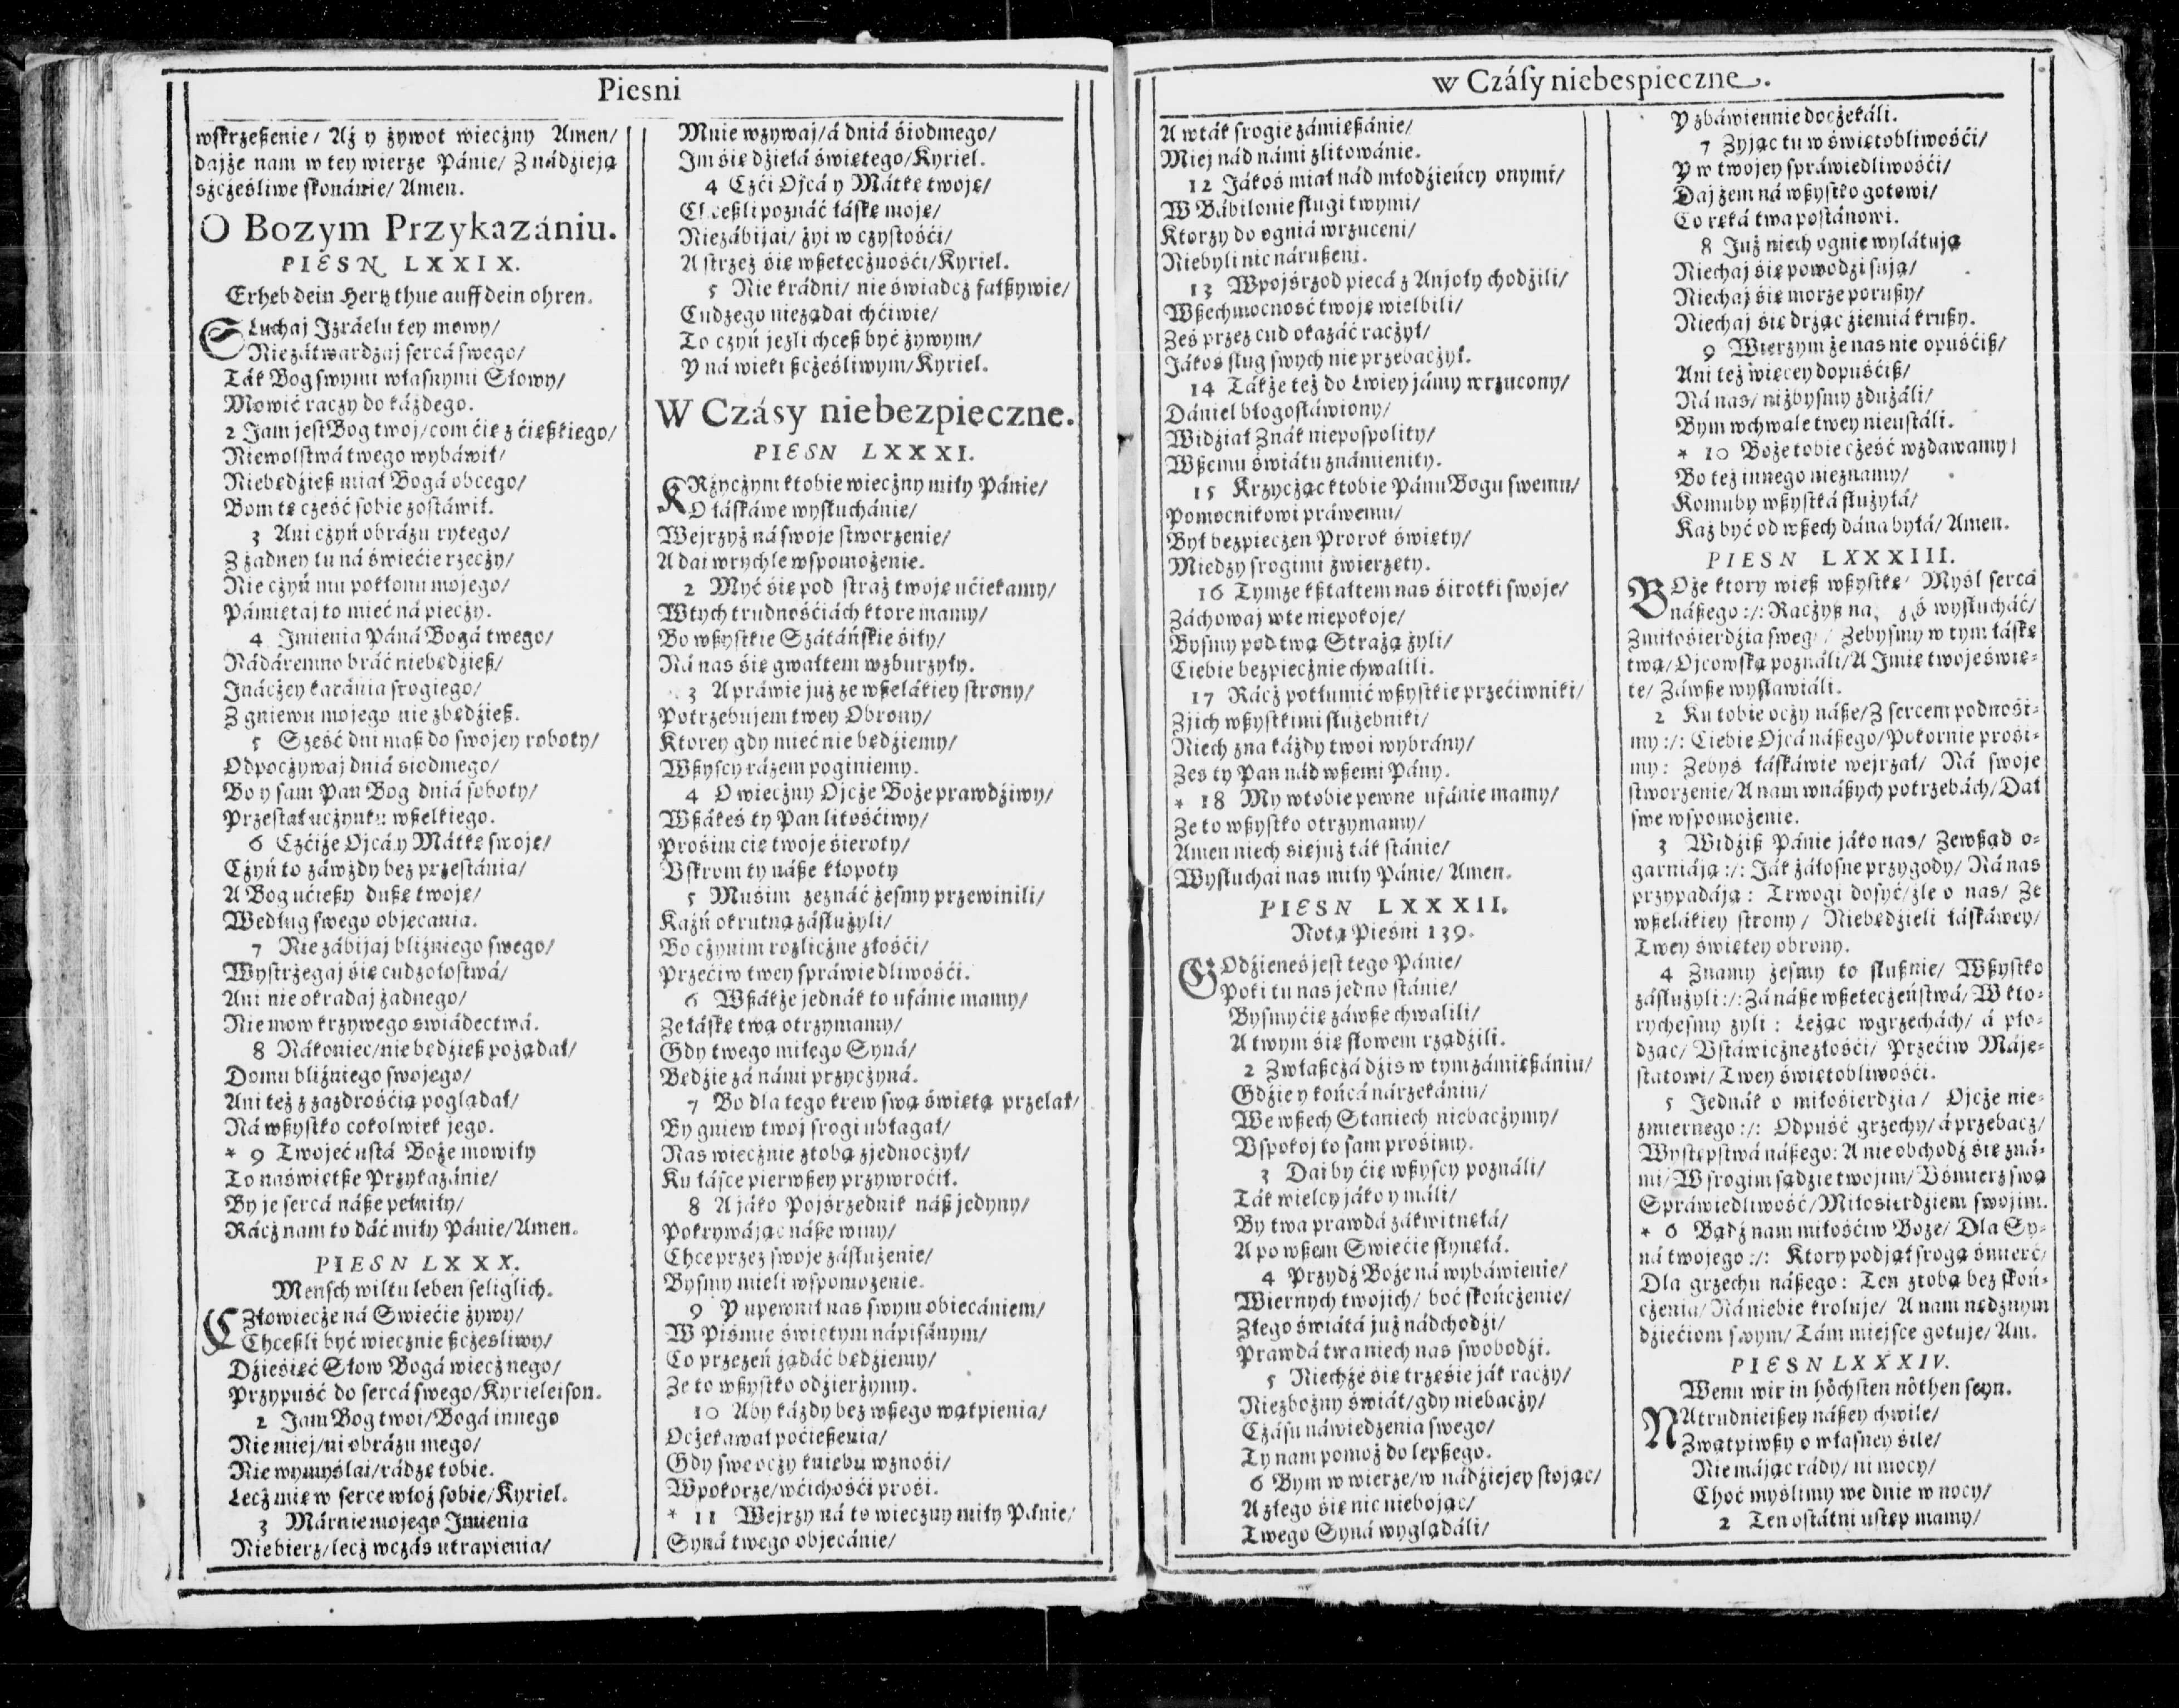 Piesni
wſkrzeßenie / Aż y żywot wieczny Amen/
dajże nam w tey wierze Pánie/ Z nádzieją
szcżęśliwe ſkonánie/ Amen.
O Bozym Przykazániu.
PIESN LXXIX.
Erheb dein Hertz thue auff dein ohren.
SLuchaj Izráelu tey mowy/
Niezátwardzaj ſercá ſwego/
Ták Bog ſwymi własnymi Słowy/
Mowić raczy do káżdego.
2 Jam jeſt Bog twoj/com ćię z ćięßkiego/
Niewolſtwá twego wybáwił/
Niebędzieß miał Bogá obcego/
Bom tę cześć ſobie zoſtáwił.
3 Ani czyń obrázu rytego/
Z żadney tu ná świećie rzecży/
Nie cżyń mu pokłonu mojego/
Pámiętaj to mieć ná piecży.
4 Imienia Páná Bogá twego/
Nádáremno bráć niebędżieß/
Ináczey karánia ſrogiego/
Z gniewu mojego nie zbędżieß.
5 Sześć dni maß do ſwojey roboty/
Odpocżywaj dniá siodmego/
Bo y ſam Pan Bog dniá ſoboty/
Przeſtał ucżynku wßelkiego.
6 Cżćiże Ojcá y Mátkę ſwoję/
Cżyń to záwżdy bez przeſtánia/
A Bog ućießy dußę twoję/
Według ſwego objecania.
7 Nie zábijaj bliżniego ſwego/
Wyſtrżegaj się cudzołoſtwá/
Ani nie okradaj żadnego/
Nie mow krzywego swiádectwá.
8 Nákoniec/nie będżieß pożądał/
Domu bliżniego ſwojego/
Ani też z zazdrośćią poglądał/
Ná wßyſtko cokolwiek jego.
* 9 Twojeć uſtá Boże mowiły
To naświętße Przykazánie/
By je ſercá náße pełniły/
Rácż nam to dáć miły Pánie/Amen.
PIESN LXXX.
Menſch wiltu leben ſeliglich.
CZłowiecże ná Swiećie żywy/
Chceßli być wiecznie ßcżęsliwy/
Dżieśięć Słow Bogá wiecżnego/
Przypuść do ſercá ſwego/Kyrieleiſon.
2 Jam Bog twoi/Bogá innego
Nie miej/ni obrázu mego/
Nie wymyślai/rádzę tobie.
Lecż mię w ſerce włoż ſobie/Kyriel.
3 Márnie mojego Imienia
Niebierz/lecż wcżás utrapienia/
Mnie wzywaj/á dniá śiodmego/
Im śię dżiełá świętego/Kyriel.
4 Cżći Ojcá y Mátkę twoję/
Chceßli poznáć łáſkę moję/
Niezábijai/ żyi w czyſtośći/
A ſtrzeż się wßetecżnośći/Kyriel.
5 Nie krádni/ nie świadcż fałßywie/
Cudzego nieżądai chćiwie/
To czyń jeżli chceß być żywym/
Y ná wieki ßcżęśliwym/Kyriel.
W Czásy niebezpieczne.
PIESN LXXXI.
KRżycżym k tobie wiecżny miły Pánie/
O łáſkáwe wyſłuchánie/
Wejrzyż ná ſwoje ſtworzenie/
A dai wrychle wſpomożenie.
2 Myć śię pod ſtraż twoję ućiekamy/
Wtych trudnośćiách ktore mamy/
Bo wßyſtkie Szátáńſkie śiły/
Ná nas śię gwałtem wzburzyły.
3 A práwie już ze wßelákiey ſtrony/
Potrzebujem twey Obrony/
Ktorey gdy mieć nie będżiemy/
Wßyſcy rázem poginiemy.
4 O wieczny Ojcże Boże prawdżiwy/
Wßákeś ty Pan litośćiwy/
Prośim cię twoje śieroty/
Vſkrom ty náße kłopoty
5 Muśim zeznáć żeſmy przewinili/
Kaźń okrutną záſłużyli/
Bo cżynim rozlicżne złośći/
Przećiw twey ſpráwiedliwośći.
6 Wßákże jednák to ufánie mamy/
Ze łáſkę twą otrzymamy/
Gdy twego miłego Syná/
Będżie zá námi przycżyná.
7 Bo dla tego krew ſwą świętą przelał/
By gniew twoj ſrogi ubłagał/
Nas wiecżnie ztobą zjednocżył/
Ku łáſce pierwßey przywroćił.
8 A jáko Pojśrzednik náß jedyny/
Pokrywájąc náße winy/
Chce przez ſwoje záſłużenie/
Byſmy mieli wſpomożenie.
9 Y upewnił nas ſwym obiecániem/
W Piśmie świętym nápiſánym/
Co przezeń żądáć będżiemy/
Ze to wßyſtko odżierżymy.
10 Aby káżdy bez wßego wątpienia/
Ocżekawał poćießenia/
Gdy ſwe ocży kniebu wznośi/
Wpokorze/wćichośći prośi.
* 11 Wejrzy ná to wieczny miły Pánie/
Syná twego objecánie/
w Czáſy niebespieczne.
A wták ſrogie zámießánie/
Miej nád námi zlitowánie.
12 Jákoś miał nád młodżieńcy onymi/
W Bábilonie ſługi twymi/
Ktorzy do ogniá wrzuceni/
Niebyli nic nárußeni.
13 Wpojśrzod piecá z Anjoły chodżili/
Wßechmocnosć twoję wielbili/
Ześ przez cud okazáć racżył/
Jákoś ſług ſwych nie przebacżył.
14 Tákże też do Lwiey jámy wrzucony/
Dániel błogoſłáwiony/
Widżiał Znák nieposplity/
Wßemu świátu známienity.
15 Krzycżąc k tobie Pánu Bogu ſwemu/
Pomocnikowi práwemu/
Był bezpieczen Prorok święty/
Miedzy ſrogimi zwierzęty.
16 Tymże kßtałtem nas śirotki ſwoje/
Záchowaj wte niepokoje/
Byſmy pod twą Strażą żyli/
Ciebie bezpiecżnie chwalili.
17 Rácż potłumić wßyſtkie przećiwniki/
Zjich wßyſtkimi ſłużebniki/
Niech zna káżdy twoi wybrány/
Zes ty Pan nád wßemi Pány.
* 18 My wtobie pewne ufánie mamy/
Ze to wßyſtko otrzymamy/
Amen niech sięjuż ták ſtánie/
Wyſłuchai nas miły Pánie/ Amen.
PIESN LXXXII.
Notą Pieśni 139.
GOdżieneś jeſt tego Pánie/
Poki tu nas jedno ſtánie/
Byſmyćię záwße chwalili/
A twym śię ſłowem rządżili.
2 Zwłaßcżá dżis w tym zámießániu/
Gdżie y końcá nárzekániu/
We wßech Staniech niebacżymy/
Vſpokoj to ſam prośimy.
3 Dai by ćię wßyſcy poználi/
Ták wielcy jáko y máli/
By twa prawdá zákwitnęłá/
A po wßem Swiećie ſłynęłá.
4 Przydż Boże ná wybáwienie/
Wiernych twojich/ boć ſkończenie/
Złego świátá już nádchodżi/
Prawdá twa niech nas ſwobodżi.
5 Niechże śię trzęsie ják raczy/
Niezbożny świát/gdy niebacży/
Cżáſu náwiedzenia ſwego/
Ty nam pomoż do lepßego.
6 Bym w wierze/w nádżiejey ſtojąc/
A złego śię nic niebojąc/
Twego Syná wyglądáli/
Y zbáwiennie docżekáli.
7 Zyjąc tu w świętobliwośći/
Y w twojey ſpráwiedliwośći/
Daj żem ná wßyſtko gotowi/
Co ręká twa poſtánowi.
8 Już niech ognie wylátują
Niechaj śię powodzi ſują/
Niechaj śię morze porußy/
Niechaj śię drżąc żiemiá krußy.
9 Wierzym że nas nie opuśćiß/
Ani też więcey dopuśćiß/
Ná nas/ niżbyſmy zdużáli/
Bym wchwale twey nieuſtáli.
* 10 Boże tobie cżeść wzdawamy/
Bo też innego nieznamy/
Komuby wßyſtká ſłużyłá/
Każ być od wßech dána byłá/ Amen.
PIESN LXXXIII.
BOże ktory wieß wßyſtkę/ Myśl ſercá
náßego :/: Racżyß wyſłucháć/
Zmiłośierdżia ſweg/ Zebyſmy w tym łáſkę
twą/ Ojcowſką poználi/ A Imię twoje świę-
te/ Záwße wyſławiáli.
2 Ku tobie ocży náße/ Z ſercem podnośi-
my :/: Ciebie Ojcá náßego/ Pokornie prośi-
my: Zebyś łáſkáwie wejrzał/ Ná ſwoje
ſtworzenie/ A nam wnáßych potrzebách/ Dał
ſwe wſpomożenie.
3 Widżiß Pánie jáko nas/ Zewßąd o-
garniáją :/: Ják żáłoſne przygody/ Ná nas
przypadáją : Trwogi doſyć/ źle o nas/ Ze
wßelákiey ſtrony / Niebędżieli łáſkáwey/
Twey świętey obrony.
4 Znamy żeſmy to ſłußnie/ Wßyſtko
záſłużyli :/: Zá náße wßetecżeńſtwá/ W kto-
rycheſmy żyli : Leżąc wgrzechách/ á pło-
dząc/ Vſtáwicżne złośći/ Przećiw Máje-
ſtatowi/ Twey świętobliwośći.
5 Jednák o miłośierdzia / Ojcże nie-
zmiernego :/: Odpuść grzechy/ á przebacż/
Wyſtępſtwá náßego: A nie obchodż śię zná-
mi/ W ſrogim ſądżie twojim/ Vśmierz ſwą
Spráwiedliwość/ Miłośierdżiem ſwojim.
* 6 Bądż nam miłośćiw Boże/ Dla Sy-
ná twojego :/: Ktory podjął ſrogą śmierć/
Dla grzechu náßego : Ten ztobą bez ſkoń-
cżenia/ Ná niebie kroluje/ A nam nędznym
dżiećiom ſwym/ Tám miejſce gotuje/ Am.
PIESN LXXXIV.
Wenn wir in höchſten nöthen ſeyn.
NAtrudnieißey náßey chwile/
Zwątpiwßy o własney śile/
Nie májąc rády/ ni mocy/
Choć myślimy we dnie w nocy/
2 Ten oſtátni uſtęp mamy/